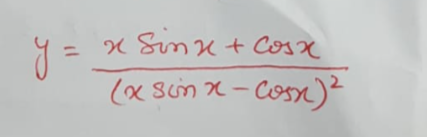 y = x Sinx + Cosx
(x sin x - Cosx)²